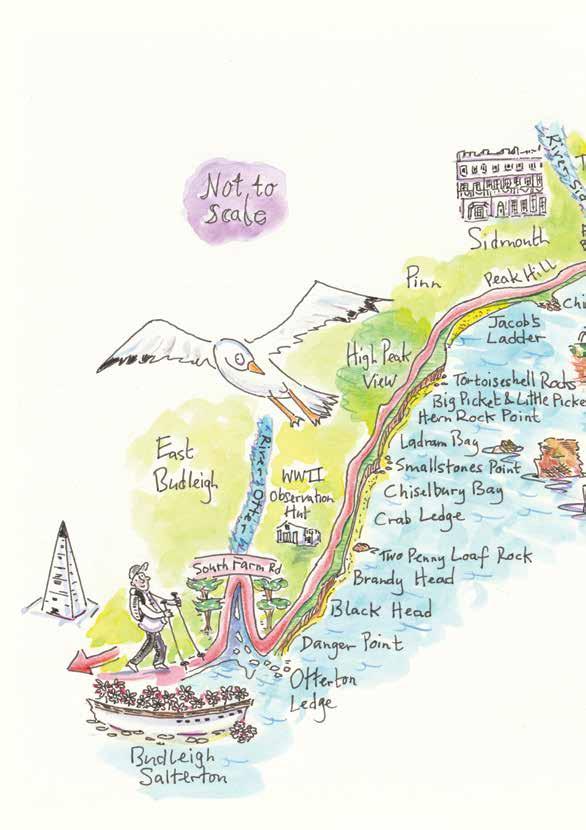 Not to
Scale
River Sid
Sidmouth
Peak Hill
Pinn
Jacob's
Ladder
High Peak
View
Tortoiseshell Rocks
Big Picket & Little Picket
Hern Rock Point
Ladram Bay
Smallstones Point
Chiselbury Bay
Crab Ledge
East
Budleigh
River Otter
WWII
Observation
Hut
South Farm Rd
Two Penny Loaf Rock
Brandy Head
Black Head
Danger Point
Otterton
Ledge
Budleigh
Salterton